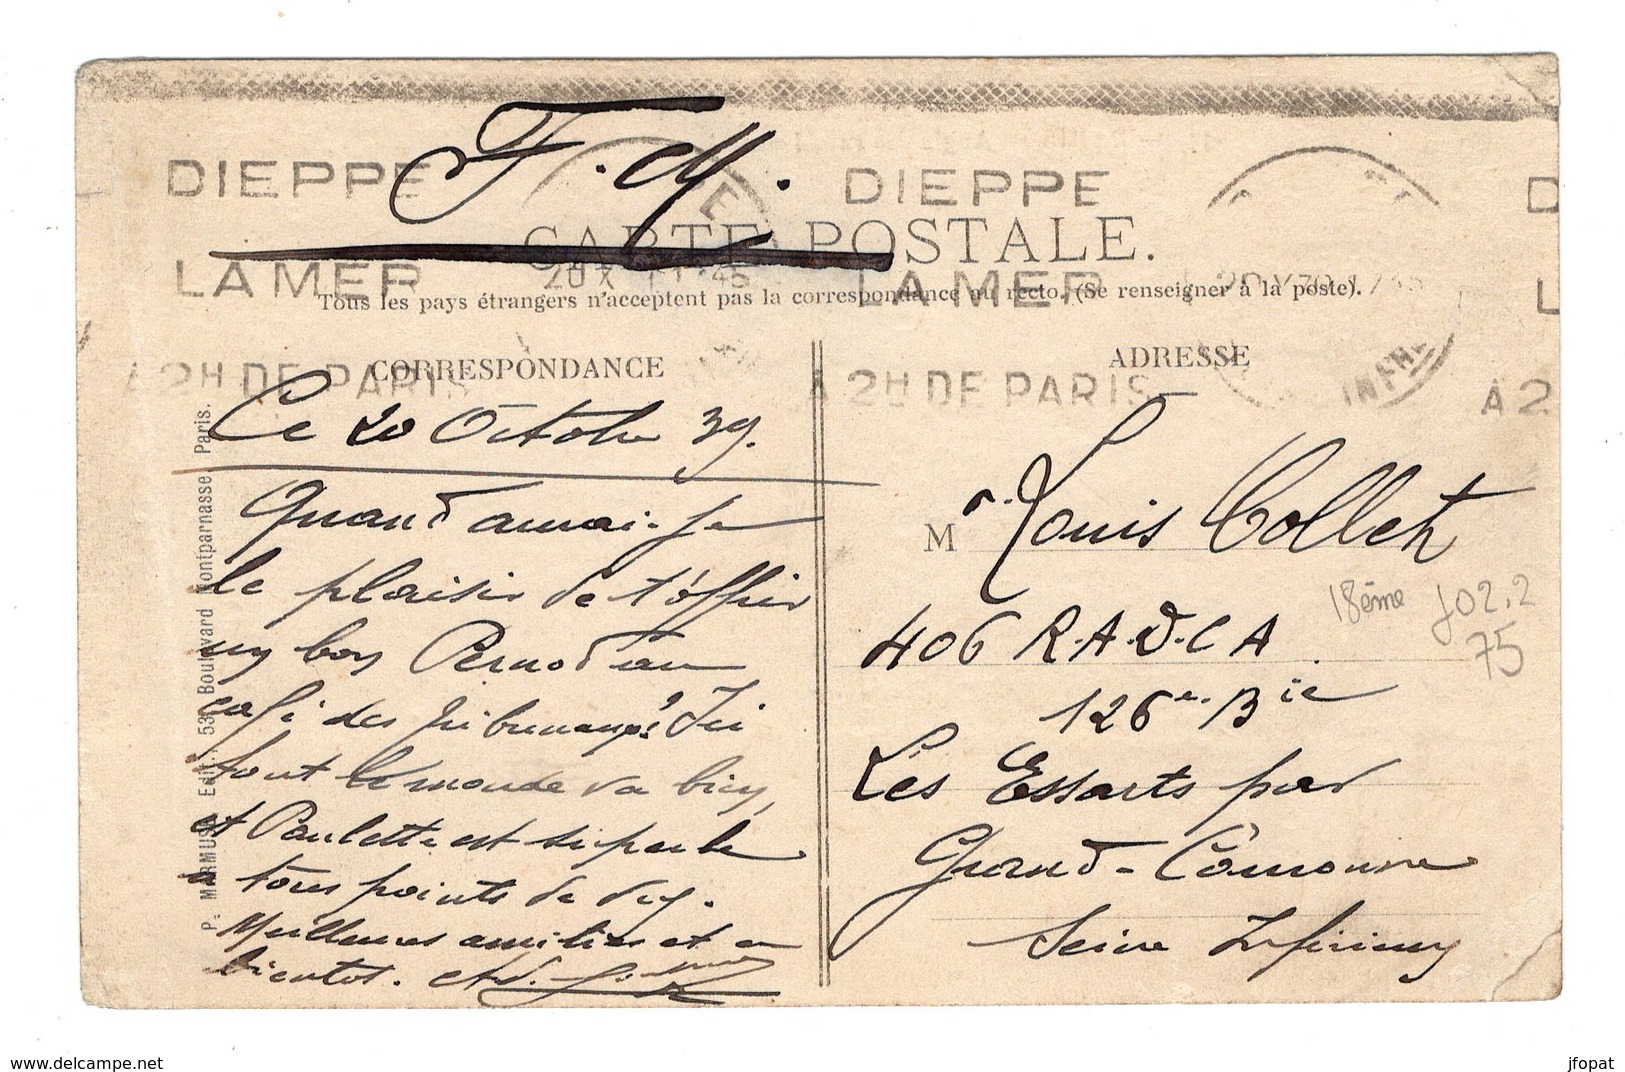 F.M.
DIEPPE
LA MER
A 2H DE PARIS
DIEPPE
LA MER
A 2H DE PARIS
CARTE POSTALE.
Tous les pays étrangers n'acceptent pas la correspondance au recto. (Se renseigner à la poste).
CORRESPONDANCE
Ce 20 Octobre 39.
Quand aurai-je
le plaisir de t'offrir
un bon Pernod au
café des Tribunaux? Ici
tout le monde va bien,
et Paulette est superbe
à tous points de vue.
Meilleures amitiés et à
bientot.
P. MARMUSE Edit., 53, Boulevard Montparnasse Paris.
ADRESSE
Mr. Louis Collet
406 R.A.D.C.A.
126e Bie
Les Essarts par
Grand-Couronne
Seine Inférieure
18ème J02.2
75
http://www.delcampe.net
jfopat